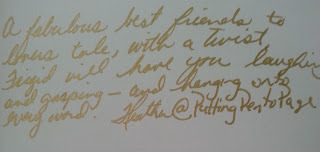 A fabulous best friends to
lovers tale, with a twist,
Frigid will have you laughing
and gasping — and hanging onto
every word. Heather@PuttingPentoPage